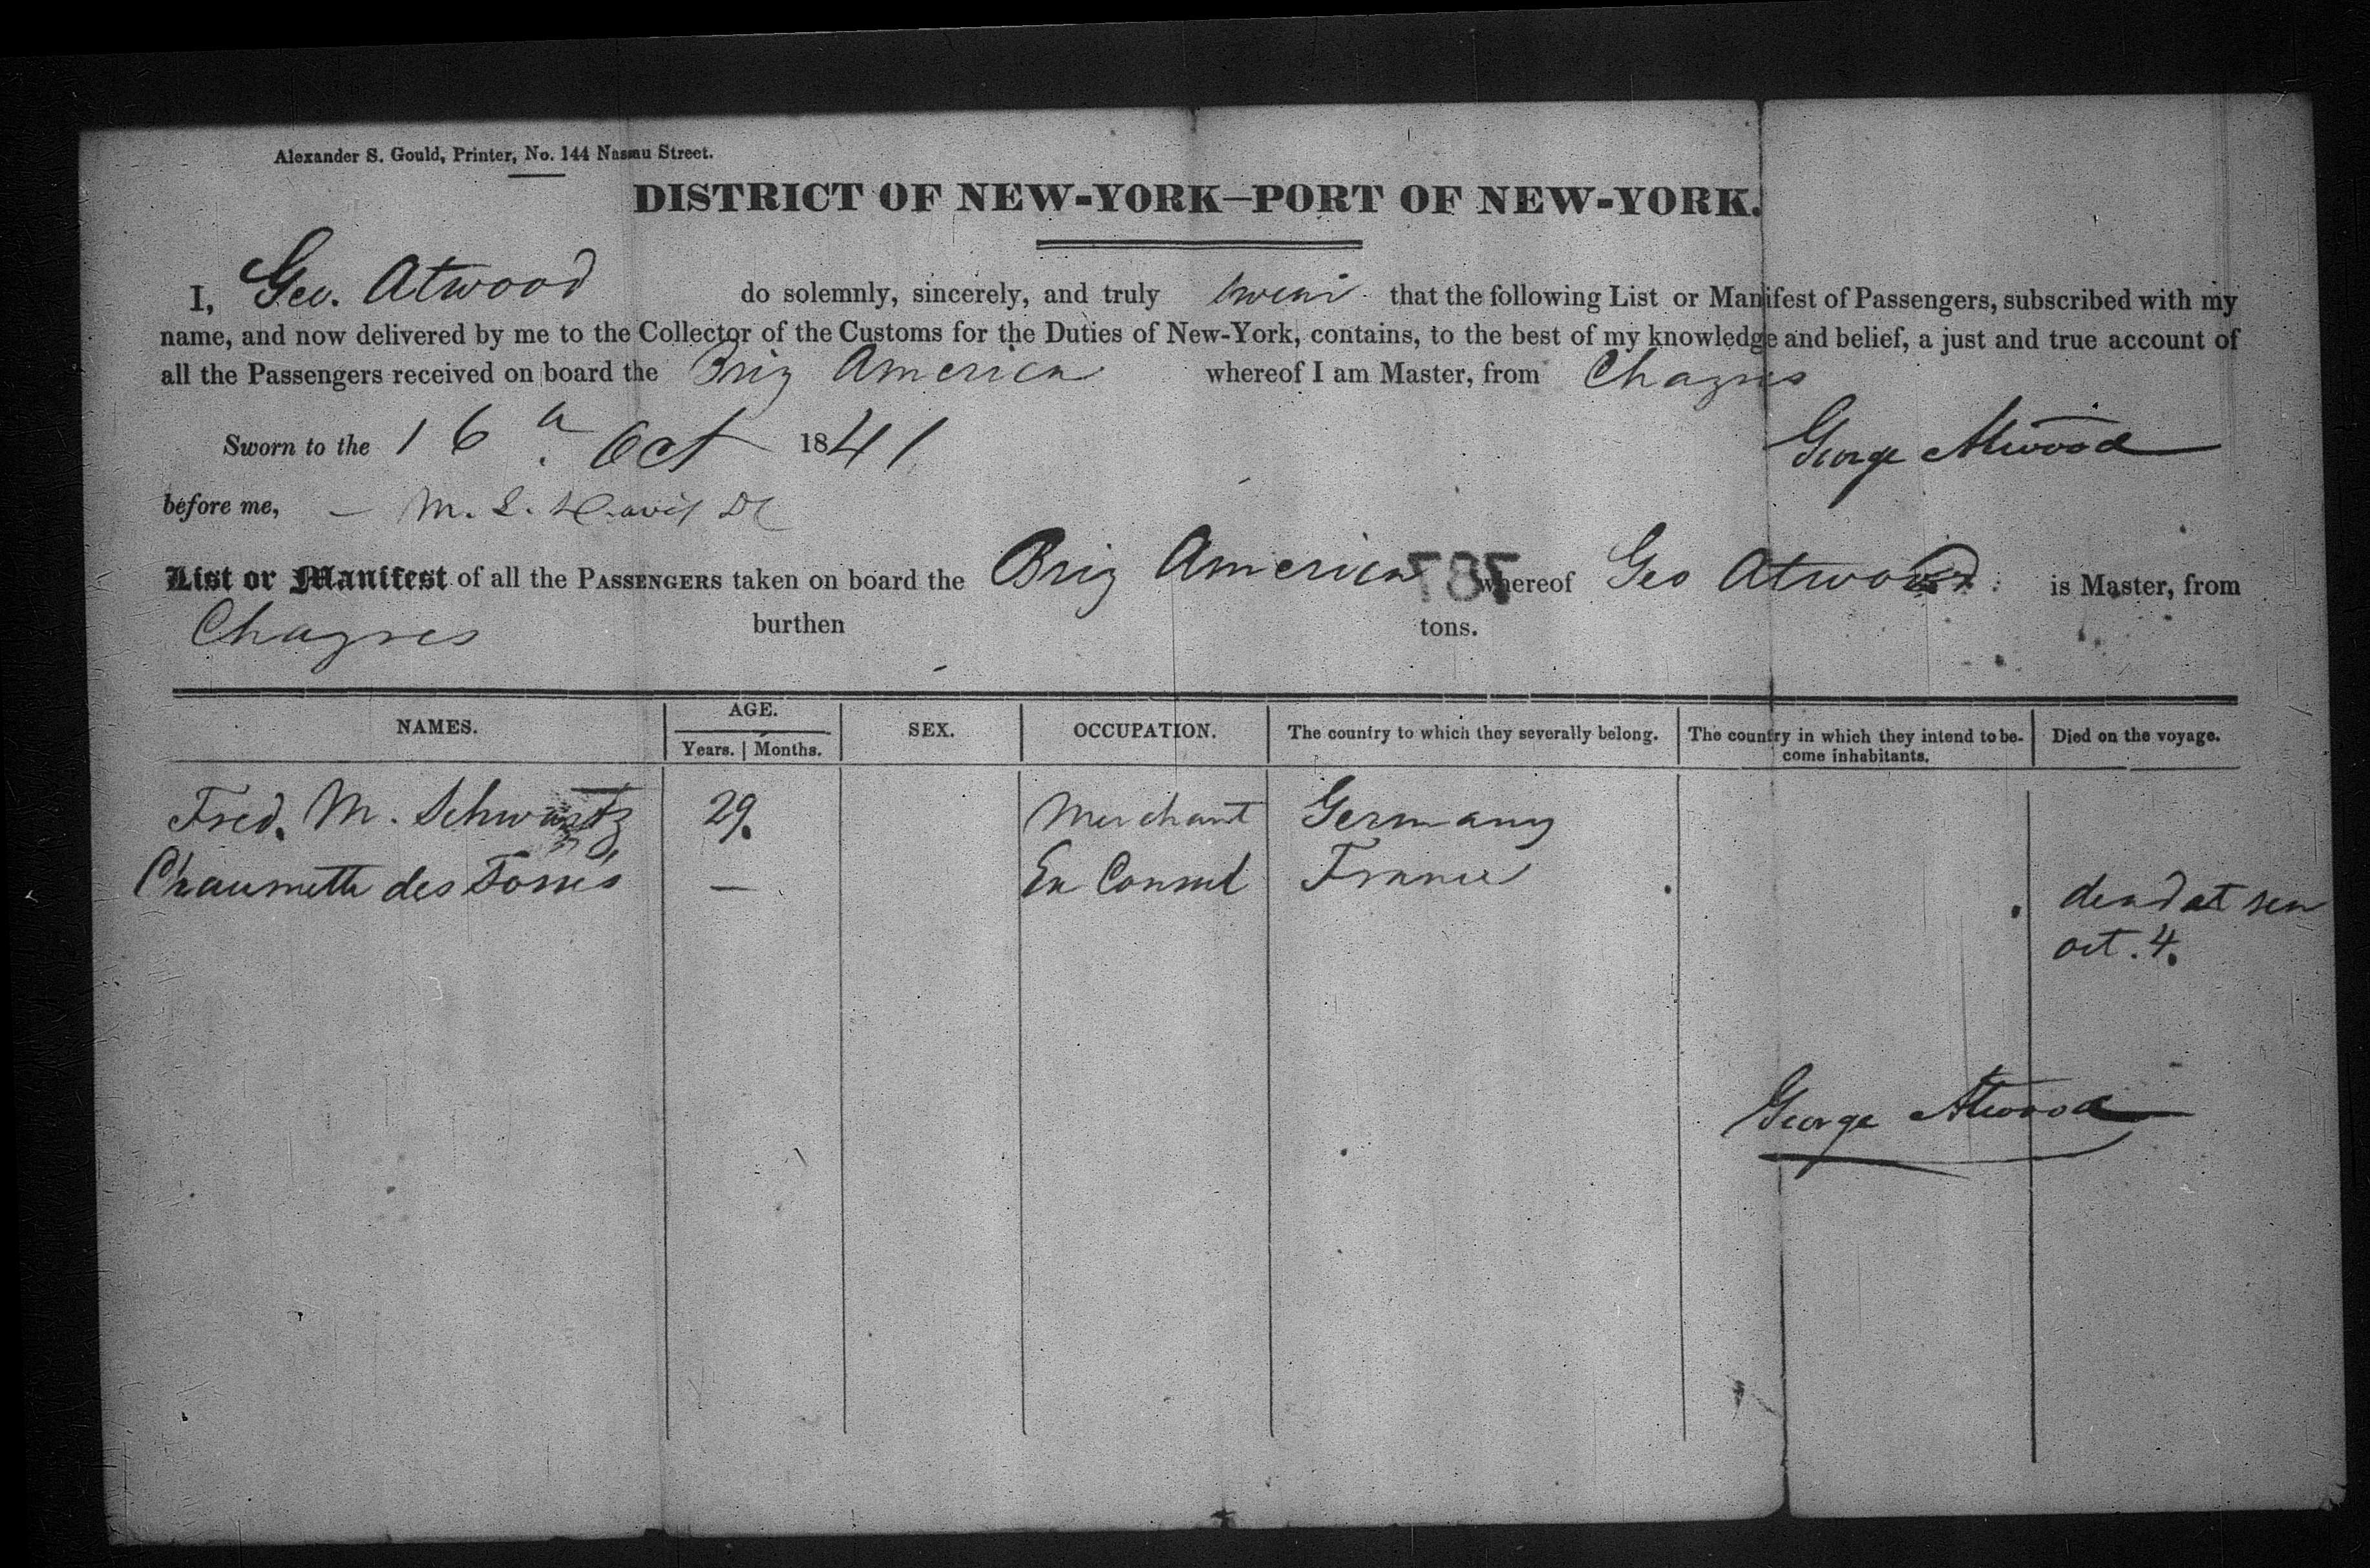 Alexander S. Gould, Printer, No. 144 Nassau Street.
DISTRICT OF NEW-YORK—PORT OF NEW-YORK.
I, Geo. Atwood do solemnly, sincerely, and truly swear that the following List or Manifest of Passengers, subscribed with my
name, and now delivered by me to the Collector of the Customs for the Duties of New-York, contains, to the best of my knowledge and belief, a just and true account of
all the Passengers received on board the Brig America whereof I am Master, from Chagres
Sworn to the 16th Oct 1841
George Atwood
before me, — M. L.
List or Manifest of all the PASSENGERS taken on board the Brig America 787 whereof Geo Atwood is Master, from
Chagres burthen tons.
NAMES. AGE. Years. Months. SEX. OCCUPATION. The country to which they severally belong. The country in which they intend to become inhabitants. Died on the voyage.
Fred. M. Schwartz 29. Merchant Germany
Chaumette des Fossés — Ex Consul France dead at sea
oct. 4.
George Atwood